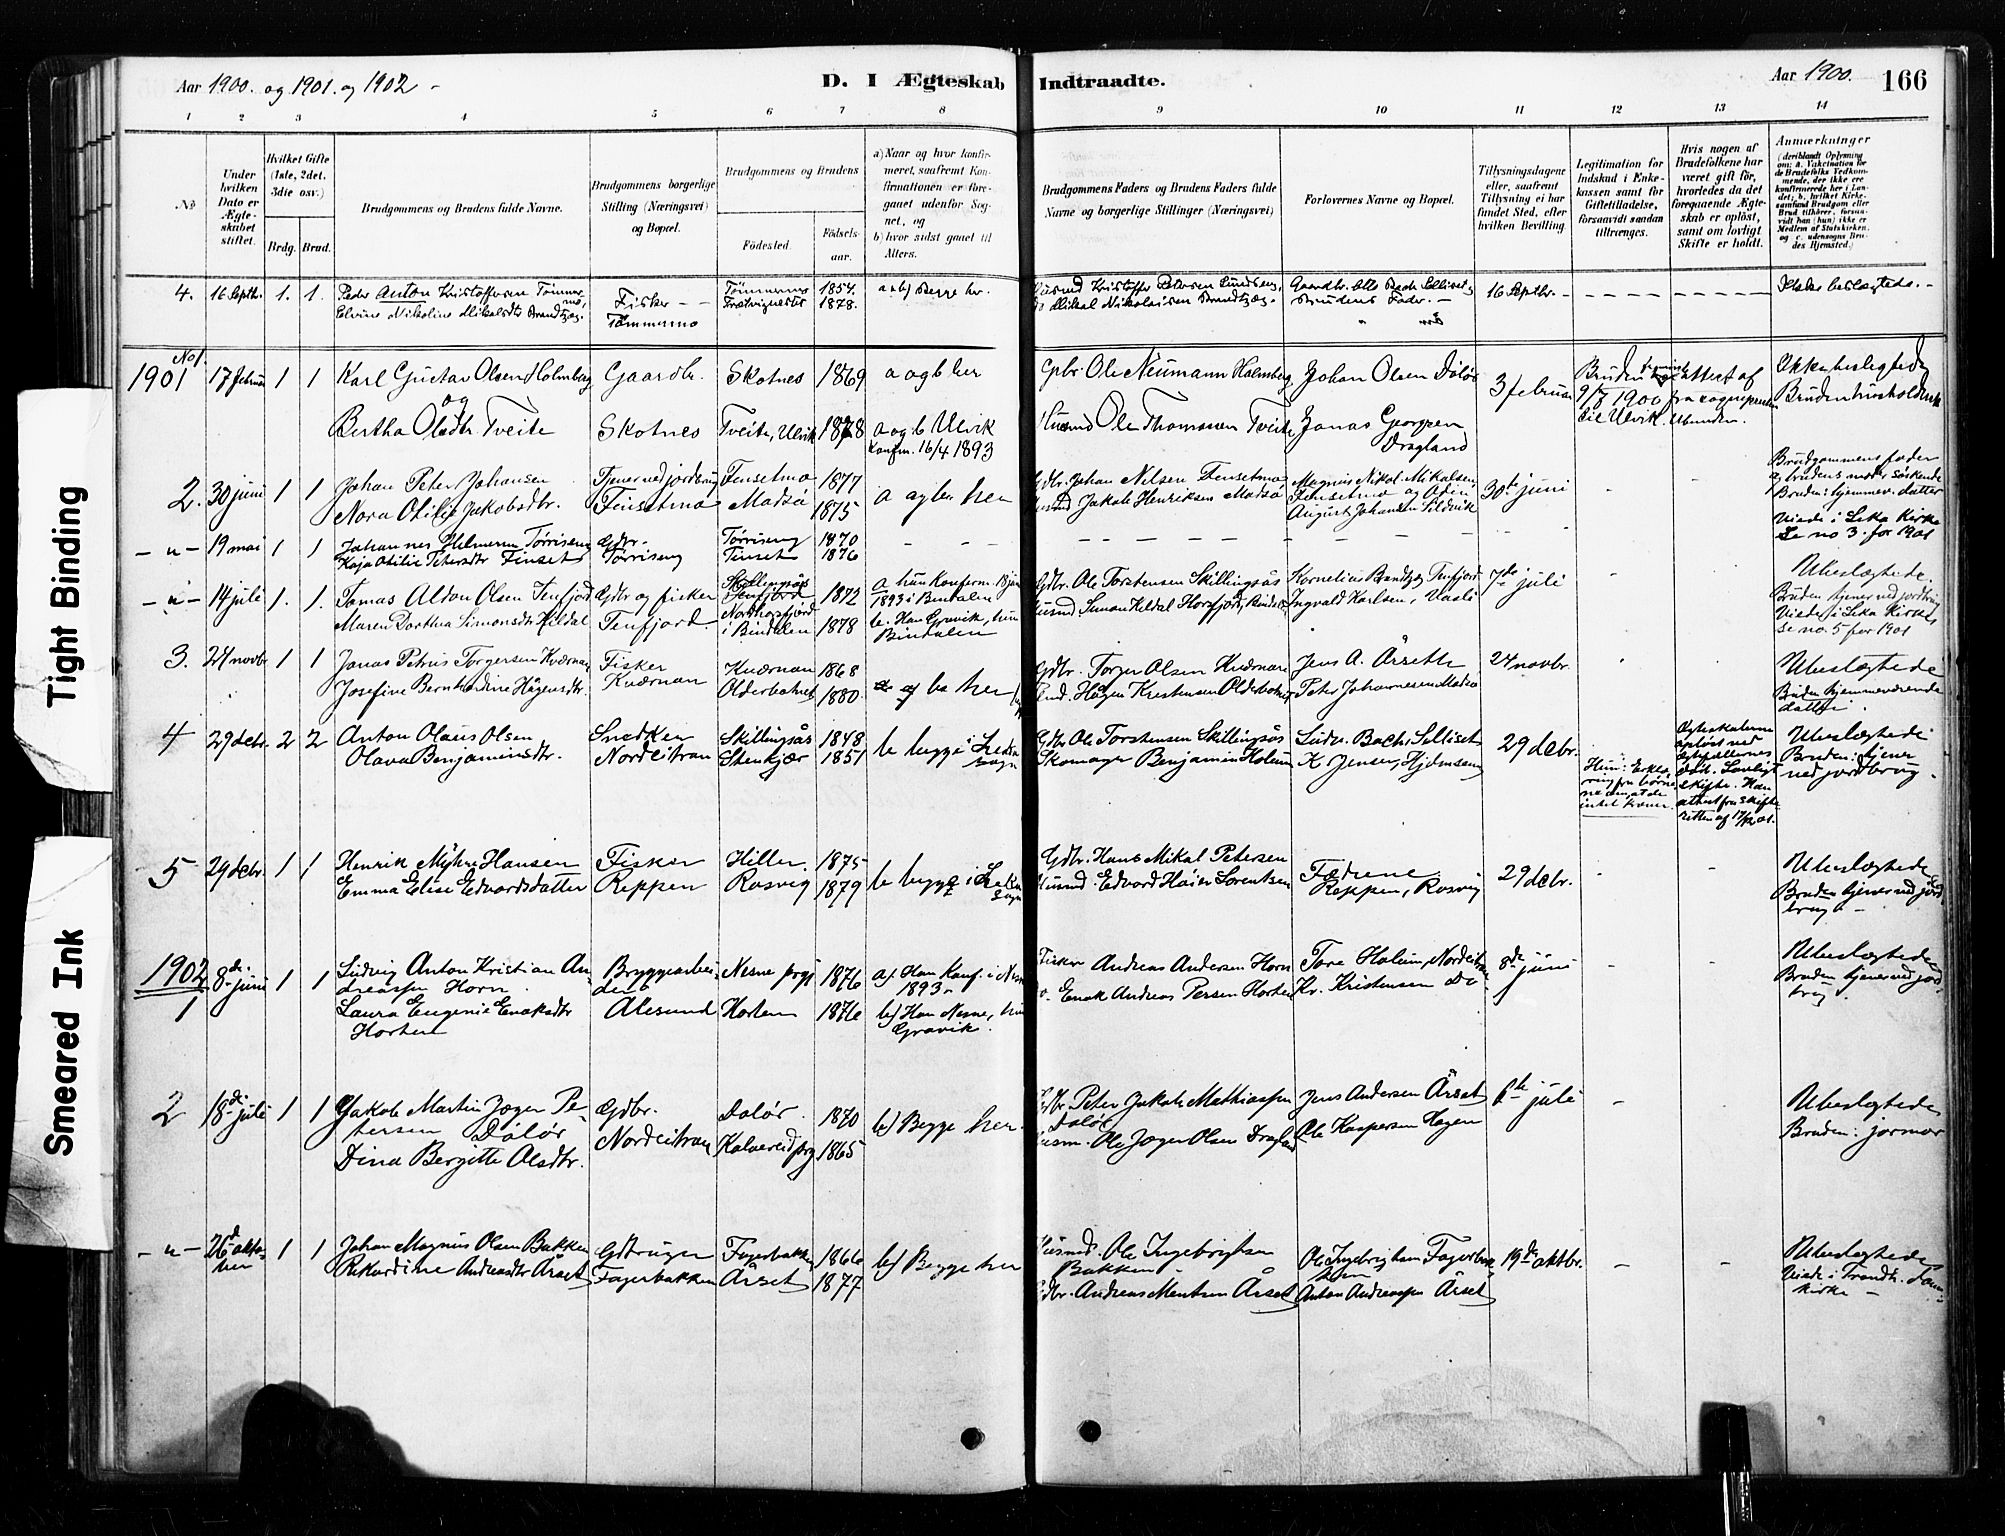 Aar 1900. og 1901. og 1902 -
D. I Ægteskab Indtraadte.
Aar 1900.
166
1 2 3 4 5 6 7 8 9 10 11 12 13 14
No
Under hvilken Dato er Ægteskabet stiftet.
Hvilket Gifte (1ste, 2det, 3die osv.)
Brdg. Brud.
Brudgommens og Brudens fulde Navne.
Brudgommens borgerlige Stilling (Næringsvei) og Bopæl.
Brudgommens og Brudens
Födested. Födsels-aar.
a) Naar og hvor konfirmeret, saafremt Konfirmationen er foregaaet udenfor Sognet, og
b) hvor sidst gaaet til Alters.
Brudgommens Faders og Brudens Faders fulde Navne og borgerlige Stillinger (Næringsvei)
Forlovernes Navne og Bopæl.
Tillysningsdagene eller, saafremt Tillysning ei har fundet Sted, efter hvilken Bevilling
Legitimation for Indskud i Enkekassen samt for Giftetilladelse, forsaavidt saadan tiltrænges.
Hvis nogen af Brudefolkene har været gift för, hvorledes da det foregaaende Ægteskab er oplöst, samt om lovligt Skifte er holdt.
Anmærkninger (deriblandt Oplysning om: a. Vakcination for de Brudefolks Vedkommende, der ikke ere konfirmerede her i Landet; b. hvilket Kirkesamfund Brudgom eller Brud tilhörer, forsaavidt han (hun) ikke er Medlem af Statskirken, og c. udensogns Brudes Hjemsted.)
4. 16 Septbr. 1. 1. Peder Anton Kristoffersen
Elvine Nikoline Mikalsdtr Brandtzæg.
Fisker - -
Tömmermo
1854. 1878.
a & b) Begge her.
Kristoffer Petersen
Mikal Nikolaisen Brandtzæg.
Brudens Fader. -
16 Septbr. -
Ikke beslægtede. -
1901 No 1. 17 februar 1 1 Karl Gustav Olsen Holmberg
og
Bertha Olsdtr. Tveite
Gaardbr.
Skotnes
Skotnes 1869
Tveite, Ulvik 1878
a og b her
a og b Ulvik
Konfm. 16/4 1893
Gbr. Ole Neumann Holmberg
Husmd Ole Thomassen Tveite
Johan Olsen Dalör
Jonas Georgsen
Dragland
3 februar
Bruden
9/8 1900
til Ulvik.
attest af
fra sognepresten
Ikke beslegtede
2. 30 juni 1 1 Johan Peter Johansen
Nora Otilie Jakobsdtr.
Tjener ved jordbrug
Finsetmo
Finsetmo 1877
Madsö 1875
a og b her
Gdbr. Johan Nilsen Finsetmo
Husmd Jakob Henriksen Madsö
Magnus Nikol. Mikalsen,
Finsetmo og Odin
August Johansen Sildvik
30te juni
Brudgommens fader
og brudens moder söskende
Bruden: hjemmev. datter
- " - 19 mai 1 1 Johannes Hilmersen Törriseng
Kaja Otilie Petersdtr Finset
Gdbr.
Törriseng
Törriseng 1870
Finset 1876
Viede i Leka Kirke
Se no 3. for 1901
- " - 14 juli 1. 1. Tomas Aldon Olsen Tenfjord
Maren Dorthea Simonsdtr Hildal
Gdbr og fisker
Tenfjord.
Skillingsås
Tenfjord 1872
Nordhorsfjord
i Bindalen 1878
a hun Konferm. 18 juni
1893 i Bindalen
b. Han Gravik, hun
Bindalen
Gdbr. Ole Torstensen Skillingsås
Husmd. Simon Hildal Horsfjord, Bindalen
Kornelius Brandtzæg Tenfjord
Ingvald Karlsen, Vaslö
7de juli
Ubeslægtede.
Bruden tjener ved jordbrug
Viede i Leka Kirke
se no. 5 for 1901
3. 24 novbr 1 1 Jonas Petrus Torgersen Kvernan
Josefine Bernhardine Hågensdtr.
Fisker
Kvernan
Kvernan 1868
Olderbaknes 1880
b her
Gdbr. Torger Olsen Kvernan
Hågen Kristensen Olderbaknes
Jens A. Årseth
Peter Johannesen Madsö
24 novbr.
Ubeslægtede
Bruden hjemmeværende
datter.
4 29 debr. 2 2 Anton Olaus Olsen
Olava Benjaminsdtr.
Snedker
Nordeitran
Skillingsås 1848
Stenkjær 1851
b begge i Leka
sogn
Gdbr Ole Torstensen Skillingsås
Skomager Benjamin Holum
Ludv. Bach, Selliset
K Jensen, Hjemseng
29 debr.
Hun: Erklæ-
ring fra børne-
ne om, at de
intet kræver.
Egteskaberne
opløst ved
egtefællernes
död. Lovligt
skifte. Han
attest fra skifte-
retten af 17/12 01.
Ubeslægtede
Bruden: tjener
ved jordbrug.
5 29 debr. 1 1 Henrik Myhre Hansen
Emma Elise Edvardsdatter
Fisker
Reppen
Hiller 1875
Rosvig 1879
b begge i Leka
sogn
Gdbr. Hans Mikal Petersen
Husmd. Edvard Häier Sorentsen
Fædrene
Reppen, Rosvig
29 debr.
Ubeslægtede
Bruden tjener ved jord-
brug -
1902
1 8de juni 1 1 Ludvig Anton Kristian An
dreassen Horn.
Laura Eugenie Enoksdtr
Horten
Bryggearbei
der
Alesund
Nesne prgj 1876
Horten 1876
a) Han Konf. i Nesne
1893.
b) Han Nesne, hun
Gravik.
Fisker Andreas Andersen Horn
Enok Andreas Persen Horten
Tore Holum, Nordeitran
Kr. Kristensen Do
8de juni
Ubeslægtede
Bruden tjener ved jord-
brug.
2 18de juli 1 1 Jakob Martin Jæger Pe
tersen Dalör
Dina Bergitte Olsdtr.
Gdbr.
Nordeitran
Dalör. 1870
Kolvereid prg 1865
b) Begge her.
Gdbr Peter Jakob Mathiassen
Dalör
Husm. Ole Jæger Olsen Dragland
Jens Andersen Årset
Ole Kaspersen Hagen
6te juli
Ubeslægtede
Bruden: jormor
- " - 26de okto-
ber 1 1 Johan Magnus Olsen Bakken
Rikardine Andreasdtr Årset
Gdbruger
Fagerbakken
Fagerbakken 1866
Årset 1877
b) Begge her
Husmd. Ole Ingebrigtsen
Bakken -
Gdbr. Andreas Mentsen Årset
Ole Ingebrigtsen Fagerbak
ken
Anton Andreassen Årset
19de oktbr.
Ubeslægtede
Viede i Trondh. Dom-
kirke -
Tight Binding
Smeared Ink